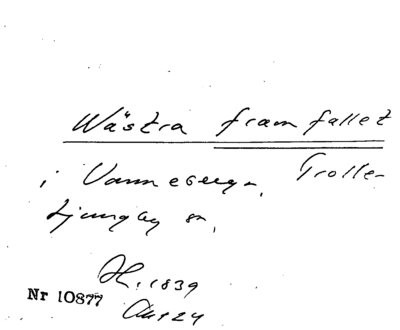 Wästra framfallet
i Vanneberga, Trolle-
Ljungby sn,
H. 1839
Nr 10877